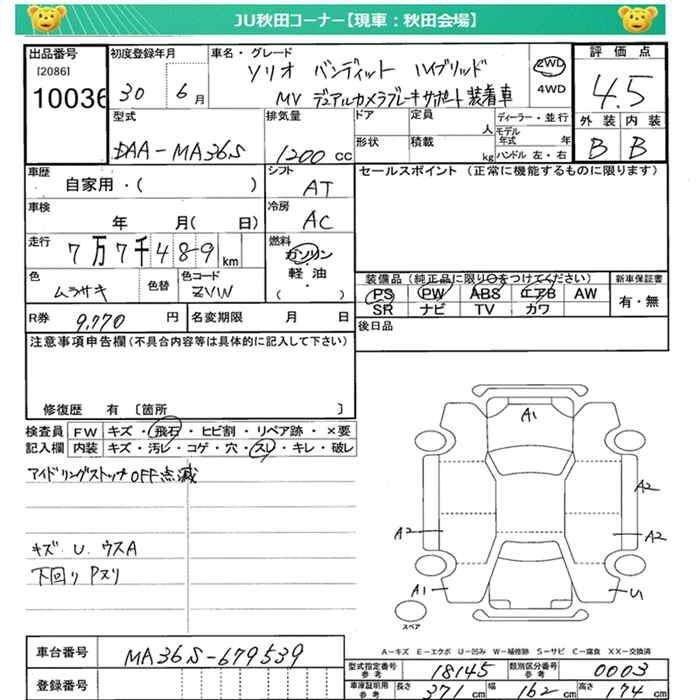 JU秋田コーナー【現車：秋田会場】
出品番号
[2086]
10036
初度登録年月
30 6月
車名・グレード
ソリオ バンディット ハイブリッド
MV デュアルカメラブレーキサポート装着車
2WD
4WD
評価点
4.5
外装 内装
B B
型式
DAA-MA36S
排気量
1200 cc
ドア
定員
人
ディーラー・並行
形状
積載
kg
モデル年式 年
ハンドル 左・右
車歴
自家用・( )
シフト
AT
セールスポイント (正常に機能するものに限ります)
車検
年 月( 日)
冷房
AC
走行
7万7千489km
燃料
ガソリン
・
軽油
・
( )
色
ムラサキ
色替
色コード
ZVW
装備品(純正品に限り○をつけてください)
PS PW ABS エアB AW
SR ナビ TV カワ
新車保証書
有・無
R券 9,770 円
名変期限 月 日
後日品
注意事項申告欄(不具合内容等は具体的に記入して下さい)
修復歴 有 〔箇所 〕
検査員記入欄
FW キズ・飛石・ヒビ割・リペア跡・×要
内装 キズ・汚レ・コゲ・穴・スレ・キレ・破レ
アイドリングストップOFF点滅
キズ.U.ウスA
下回りPスリ
A1
A2
A2
A2
A1
U1
スペア
A－キズ E－エクボ U－凹み W－補修跡 S－サビ C－腐食 XX－交換済
車台番号
MA36S-679539
登録番号
型式指定番号
参考
18145
類別区分番号
参考
0003
車庫証明用
参考
長さ 371 cm
幅 162 cm
高さ 174 cm